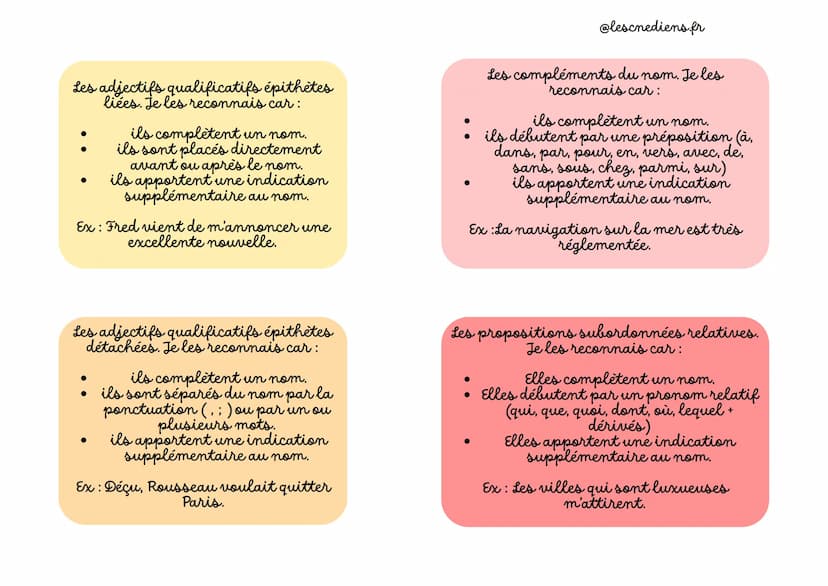 @lescnediens.fr
Les adjectifs qualificatifs épithètes
liées. Je les reconnais car :
• ils complètent un nom.
• ils sont placés directement
avant ou après le nom.
• ils apportent une indication
supplémentaire au nom.
Ex : Fred vient de m'annoncer une
excellente nouvelle.
Les compléments du nom. Je les
reconnais car :
• ils complètent un nom.
• ils débutent par une préposition (à,
dans, par, pour, en, vers, avec, de,
sans, sous, chez, parmi, sur)
• ils apportent une indication
supplémentaire au nom.
Ex :La navigation sur la mer est très
réglementée.
Les adjectifs qualificatifs épithètes
détachées. Je les reconnais car :
• ils complètent un nom.
• ils sont séparés du nom par la
ponctuation ( , ; ) ou par un ou
plusieurs mots.
• ils apportent une indication
supplémentaire au nom.
Ex : Déçu, Rousseau voulait quitter
Paris.
Les propositions subordonnées relatives.
Je les reconnais car :
• Elles complètent un nom.
• Elles débutent par un pronom relatif
(qui, que, quoi, dont, où, lequel +
dérivés)
• Elles apportent une indication
supplémentaire au nom.
Ex : Les villes qui sont luxueuses
m'attirent.